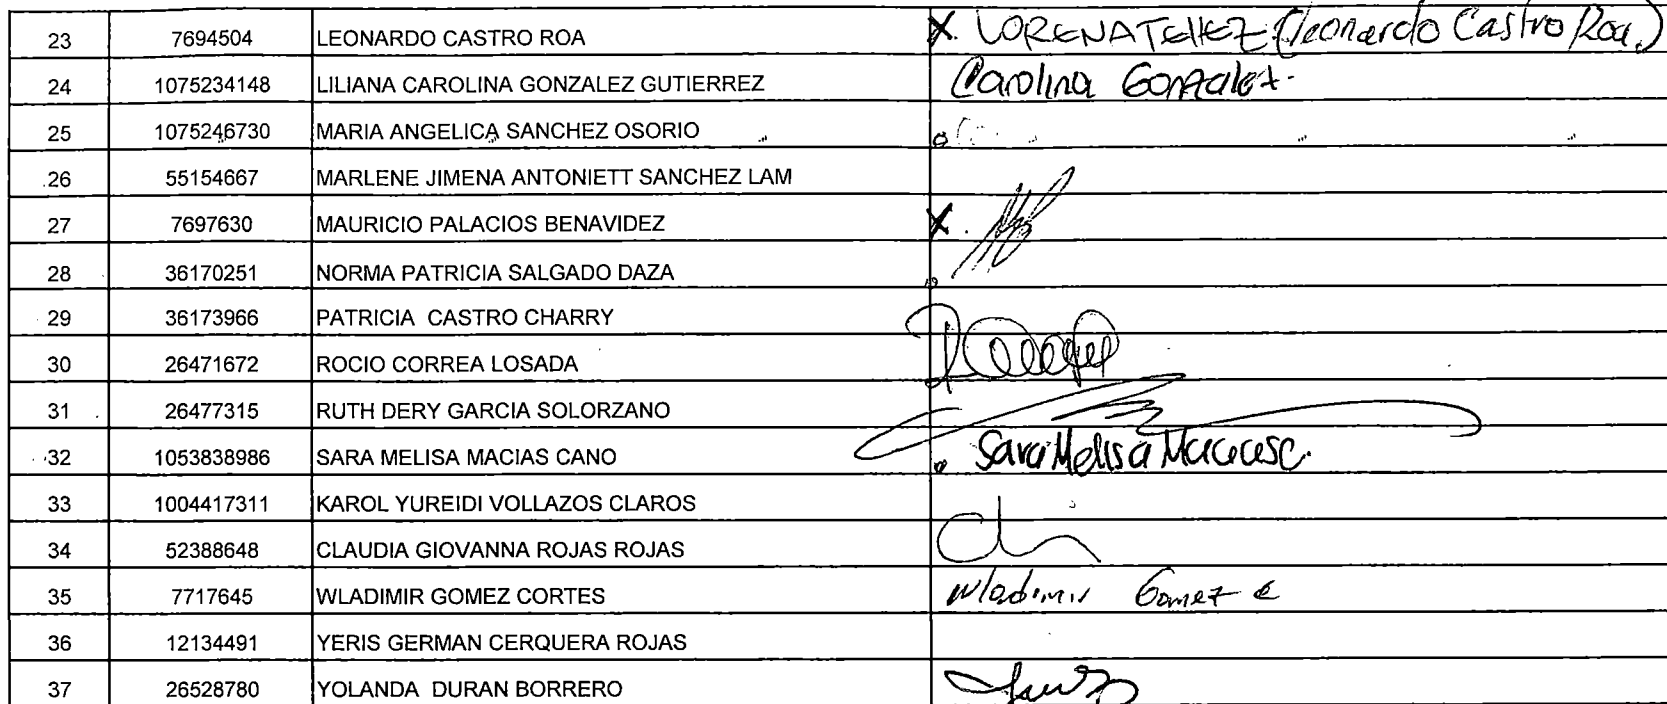 23 7694504 LEONARDO CASTRO ROA X. LORENA TELLEZ (Leonardo Castro Roa.)
24 1075234148 LILIANA CAROLINA GONZALEZ GUTIERREZ Carolina Gonzalez.
25 1075246730 MARIA ANGELICA SANCHEZ OSORIO
26 55154667 MARLENE JIMENA ANTONIETT SANCHEZ LAM
27 7697630 MAURICIO PALACIOS BENAVIDEZ X.
28 36170251 NORMA PATRICIA SALGADO DAZA
29 36173966 PATRICIA CASTRO CHARRY
30 26471672 ROCIO CORREA LOSADA
31 26477315 RUTH DERY GARCIA SOLORZANO
32 1053838986 SARA MELISA MACIAS CANO Sara Melisa Macias C.
33 1004417311 KAROL YUREIDI VOLLAZOS CLAROS
34 52388648 CLAUDIA GIOVANNA ROJAS ROJAS
35 7717645 WLADIMIR GOMEZ CORTES Wladimir Gomez C
36 12134491 YERIS GERMAN CERQUERA ROJAS
37 26528780 YOLANDA DURAN BORRERO